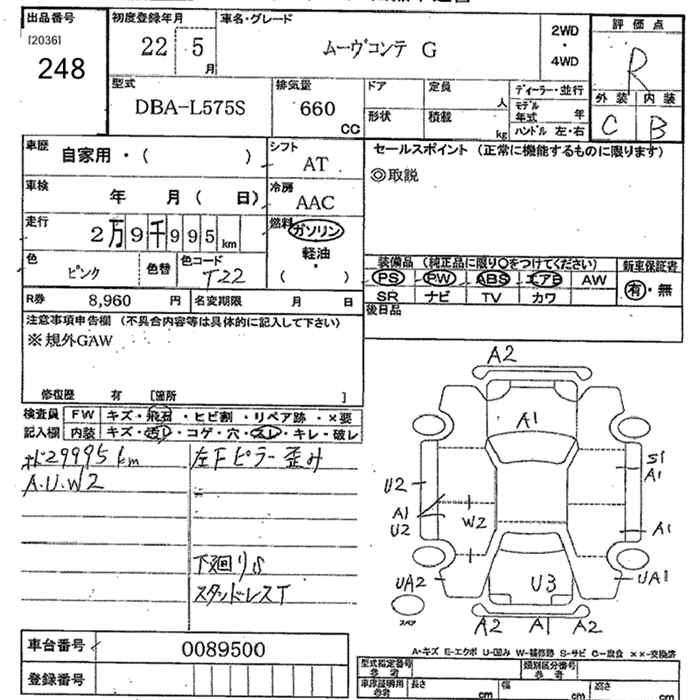 出品番号
[2036]
248
初度登録年月
22 5 月
車名・グレード
ムーヴコンテ G
2WD
・
4WD
評価点
R
外装 内装
C B
型式
DBA-L575S
排気量
660
CC
ドア
形状
定員
人
積載
kg
ディーラー・並行
モデル
年式 年
ハンドル 左・右
車歴
自家用・( )
シフト
AT
セールスポイント (正常に機能するものに限ります)
◎取説
車検
年 月 ( 日)
冷房
AAC
走行
2万9千995km
燃料
ガソリン
軽油
・
( )
色
ピンク
色替
色コード
T22
装備品 (純正品に限り○をつけてください)
新車保証書
PS PW ABS エアB AW
SR ナビ TV カワ
有・無
R券 8,960 円
名変期限 月 日
後日品
注意事項申告欄 (不具合内容等は具体的に記入して下さい)
※規外GAW
修復歴 有 [箇所 ]
検査員 FW キズ・飛石・ヒビ割・リペア跡・×要
記入欄 内装 キズ・汚レ・コゲ・穴・スレ・キレ・破レ
29995km
A.U.W2
左Fピラー歪み
下廻りS
スタッドレスT
A2
A1
S1
A1
U2
A1
U2
W2
A1
UA2
U3
UA1
スペア
A2 A1 A2
A・キズ E・エクボ U・凹み W・補修跡 S・サビ C・腐食 ××・交換済
車台番号 0089500
登録番号
型式指定番号
参考
類別区分番号
参考
車庫証明用
参考
長さ cm
幅 cm
高さ cm